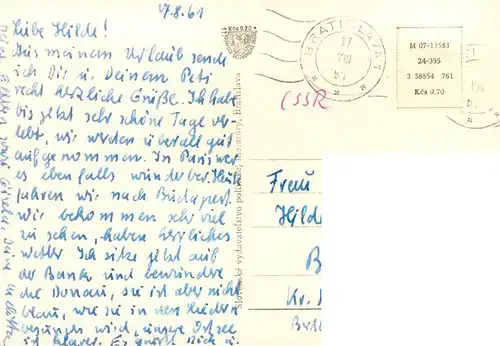 7.8.61
Liebe Hilde!
Aus meinem Urlaub sende
ich Dir u. Deinem Peti
recht herzliche Grüße. Ich habe
bis jetzt sehr schöne Tage ver-
lebt, wir werden überall gut
aufgenommen. In war
es ebenfalls wunderbar. Heute
fahren wir nach Budapest.
Wir bekommen sehr viel
zu sehen, haben herrliches
Wetter. Ich sitze jetzt auf
der Bank und bewundre
die Donau, sie ist aber nicht
blau, wie sie in den Liedern
besungen wird, unsere Ostsee
ist blauer. Es grüßt Dich u.
Slovenské vydavateľstvo politickej literatúry, Bratislava
Kčs 0.70
BRATISLAVA 1
17
VIII
61
ČSSR
M 07-13583
24-395
3 58854 761
Kčs 0.70
Frau
Hilde
B
Kr.